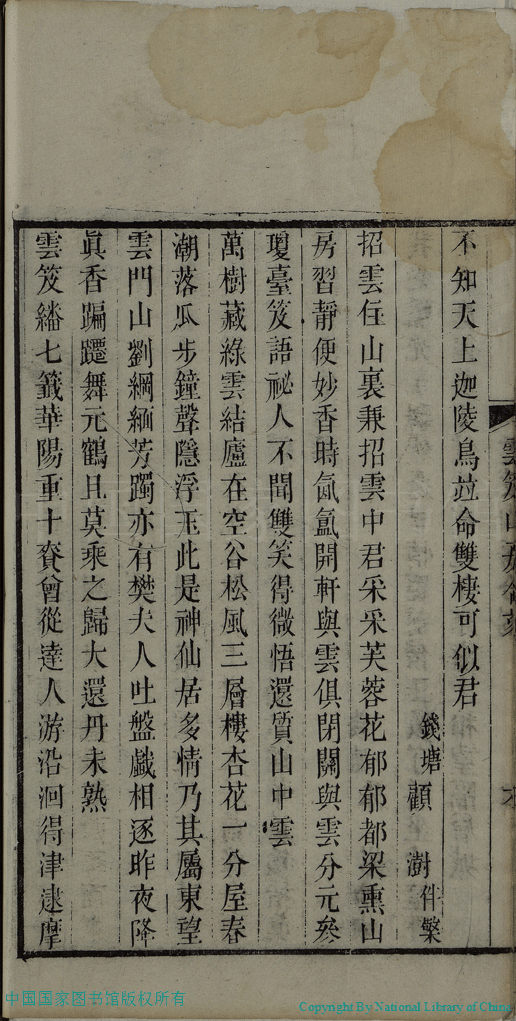 不知天上迦陵鳥竝命雙棲可似君
錢塘顧澍仵槃
招雲住山裏兼招雲中君采采芙蓉花郁郁都梁熏山
房習靜便妙香時氤氳開軒與雲俱閉關與雲分元參
瓊臺笈語祕人不聞雙笑得微悟還質山中雲
萬樹藏綠雲結廬在空谷松風三層樓杏花一分屋春
潮落瓜步鐘聲隱浮玉此是神仙居多情乃其屬東望
雲門山劉綱緬芳躅亦有樊夫人吐盤戲相逐昨夜降
眞香蹁躚舞元鶴且莫乘之歸大還丹未熟
雲笈繙七籤華陽重十賚曾從達人游沿洄得津逮摩
中国国家图书馆版权所有
Copyright By National Library of China